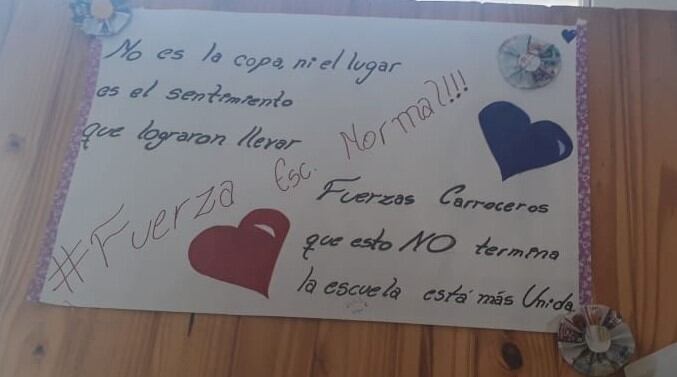 No es la copa, ni el lugar
es el sentimiento
que lograron llevar
#Fuerza Esc. Normal!!!
Fuerzas Carroceros
que esto NO termina
la escuela está más Unida.